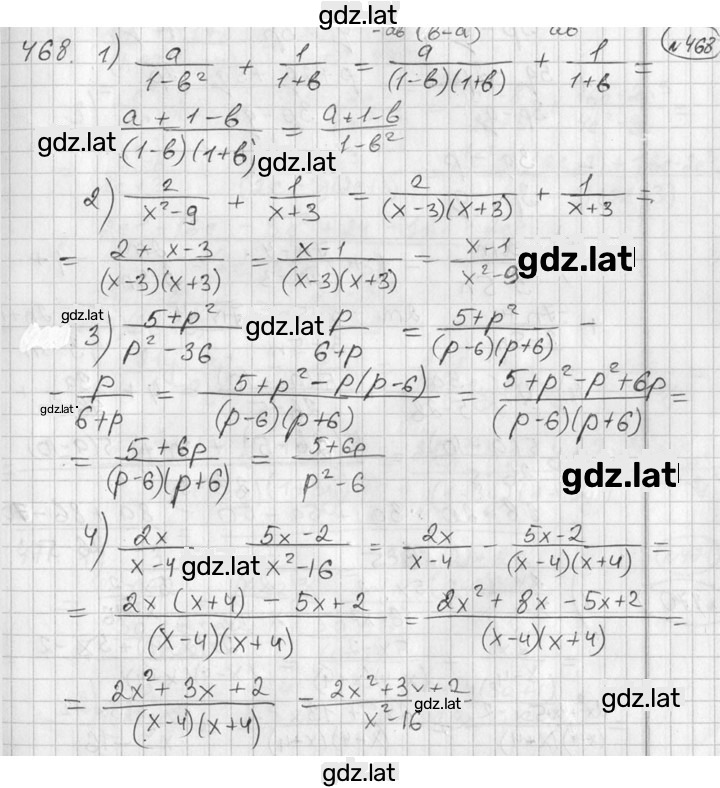 gdz.lat
-ab (b-a) ab
468. 1) a/(1-b²) + 1/(1+b) = a/((1-b)(1+b)) + 1/(1+b) = (№468)
(a + 1-b)/((1-b)(1+b)) = (a+1-b)/(1-b²)
gdz.lat gdz.lat
2) 2/(x²-9) + 1/(x+3) = 2/((x-3)(x+3)) + 1/(x+3) =
= (2 + x-3)/((x-3)(x+3)) = (x-1)/((x-3)(x+3)) = (x-1)/(x²-9) gdz.lat
gdz.lat
3) (5+p²)/(p²-36) gdz.lat p/(6+p) = (5+p²)/((p-6)(p+6)) -
- p/(6+p) = (5+p²-p(p-6))/((p-6)(p+6)) = (5+p²-p²+6p)/((p-6)(p+6)) =
gdz.lat
= (5+6p)/((p-6)(p+6)) = (5+6p)/(p²-6)
gdz.lat
4) 2x/(x-4) gdz.lat (5x-2)/(x²-16) = 2x/(x-4) - (5x-2)/((x-4)(x+4)) =
= (2x (x+4) - 5x+2)/((x-4)(x+4)) = (2x² + 8x - 5x+2)/((x-4)(x+4)) =
= (2x² + 3x + 2)/((x-4)(x+4)) = (2x²+3x+2)/(x²-16)
gdz.lat gdz.lat
gdz.lat